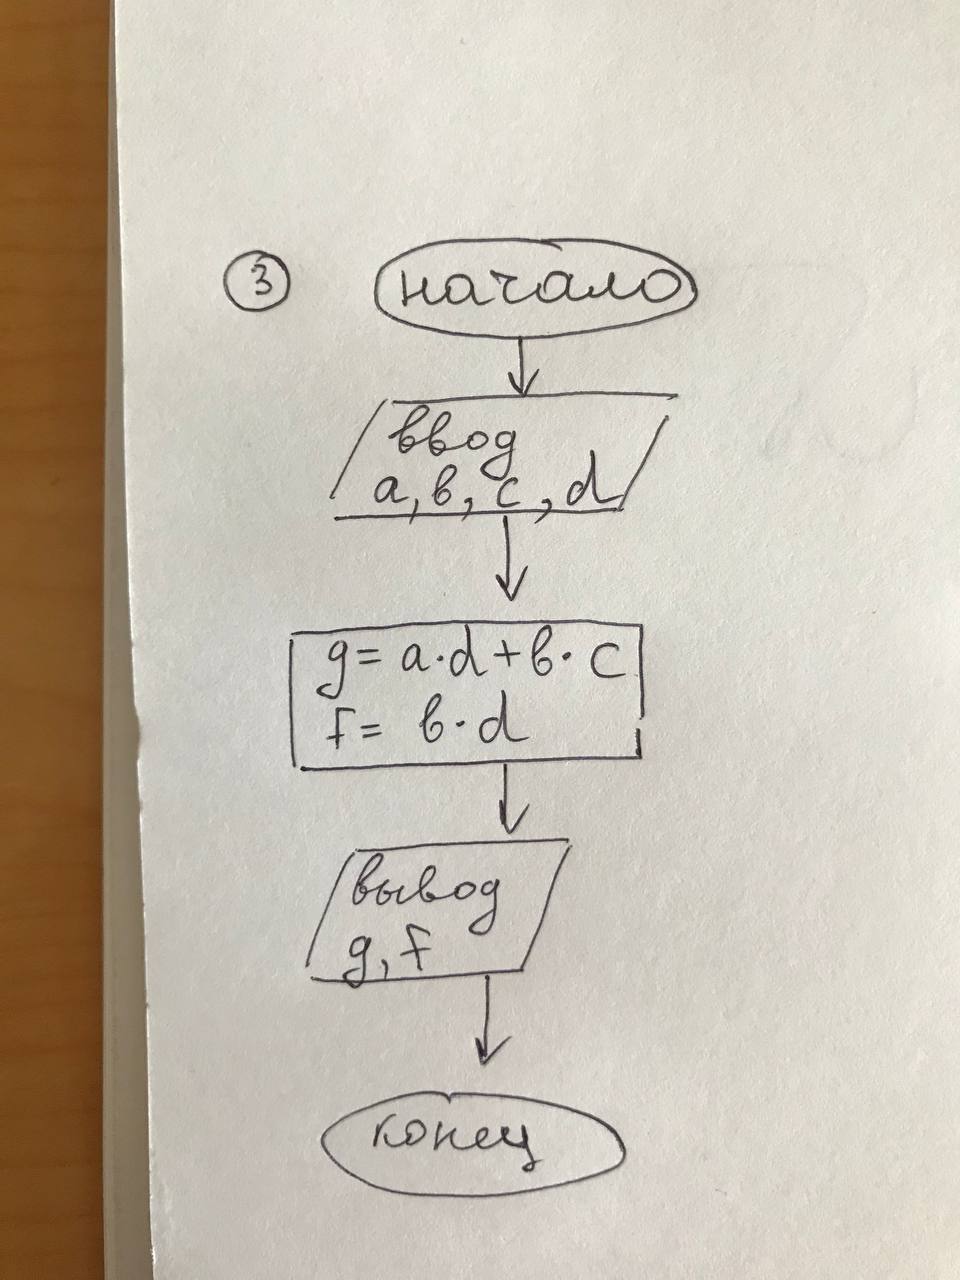 3
начало
ввод
a, в, c, d
g = a·d + в·c
f = в·d
вывод
g, f
конец